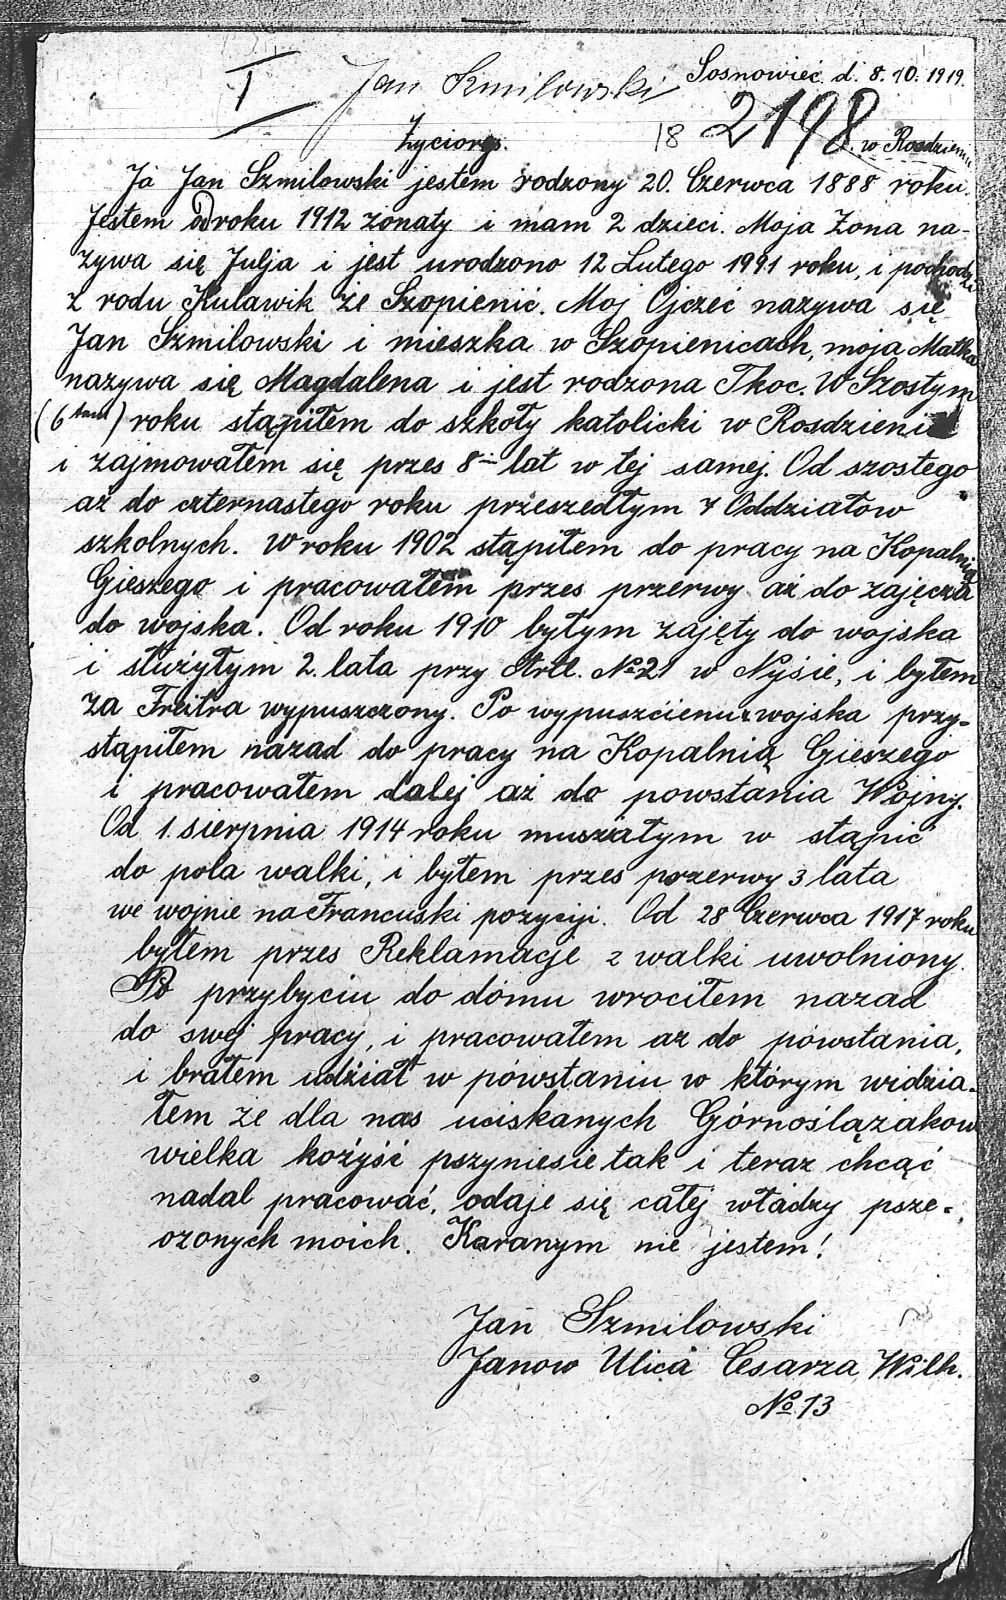 Sosnowiec d. 8.10.1919.
I Jan Szmilowski
18 2198
Życiorys. w Rosdzieniu
Ja Jan Szmilowski jestem rodzony 20. Czerwca 1888 roku.
Jestem od roku 1912 żonaty i mam 2 dzieci. Moja Żona na-
zywa się Julja i jest urodzono 12 Lutego 1991 roku, i pochodzi
z rodu Kulawik ze Szopienic. Moj Ojczeć nazywa się
Jan Szmilowski i mieszka w Szopienicach, moja Matka
nazywa się Magdalena i jest rodzona Tkoc. W Szostym
(6 tem) roku stąpiłem do szkoły katolicki w Rosdzieniu
i zajmowałem się przes 8 lat w tej samej. Od szostego
aż do czternastego roku przeszedłym 7 Oddziałow
szkolnych. W roku 1902 stąpiłem do pracy na Kopalnią
Gieszego i pracowałem przes przerwy aż do zajęcza
do wojska. Od roku 1910 byłym zajęty do wojska
i służyłym 2. lata przy Artl. No 21 w Nysie, i byłem
za Freitra wypuszczony. Po wypuszcieniu z wojska przy-
stąpiłem nazad do pracy na Kopalnią Gieszego
i pracowałem dalej aż do powstania Wojny.
Od 1. sierpnia 1914 roku musziałym w stąpić
do pola walki, i byłem przes przerwy 3 lata
we wojnie na Francuski pozyciji. Od 28 Czerwca 1917 roku
byłem przes Reklamacje z walki uwolniony.
Po przybyciu do domu wrociłem nazad
do swej pracy, i pracowałem aż do powstania,
i brałem udział w powstaniu w którym widzia-
łem że dla nas uciskanych Górnoślązakow
wielka kożyść pszyniesie tak i teraz chcąć
nadal pracować, odaje się całej władzy psze-
ozonych moich. Karanym nie jestem!
Jan Szmilowski
Janow Ulica Cesarza Wilh.
No 13